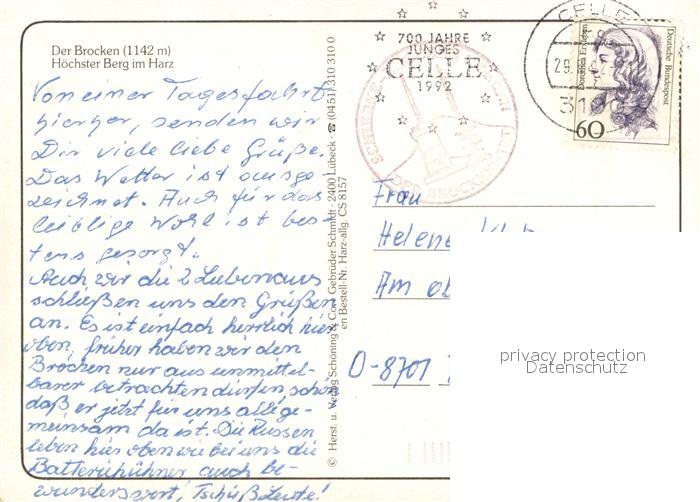 Der Brocken (1142 m)
Höchster Berg im Harz
Von einer Tagesfahrt
hierher, senden wir
Dir viele liebe Grüße.
Das Wetter ist ausge-
zeichnet. Auch für das
leibliche Wohl ist bes-
tens gesorgt.
Auch wir die 2
schließen uns den Grüßen
an. Es ist einfach herrlich hier
oben, früher haben wir den
Brocken nur aus unmittel-
barer betrachten dürfen, schön
daß er jetzt für uns allge-
meinsam da ist. Die Russen
leben hier oben wie bei uns die
Batteriehühner auch be-
wundernswert, Tschüß Leute!
© Herst. u. Verlag Schöning & Co + Gebrüder Schmidt · 2400 Lübeck · ☎ (0451) 310 310 0
en Bestell-Nr. Harz-allg. CS 8157
700 JAHRE
JUNGES
CELLE
1992
DER BROCKEN
CELLE
29.
Deutsche Bundespost
Dorothea Erxleben
60
Frau
Helene
Am
O-8701
privacy protection
Datenschutz